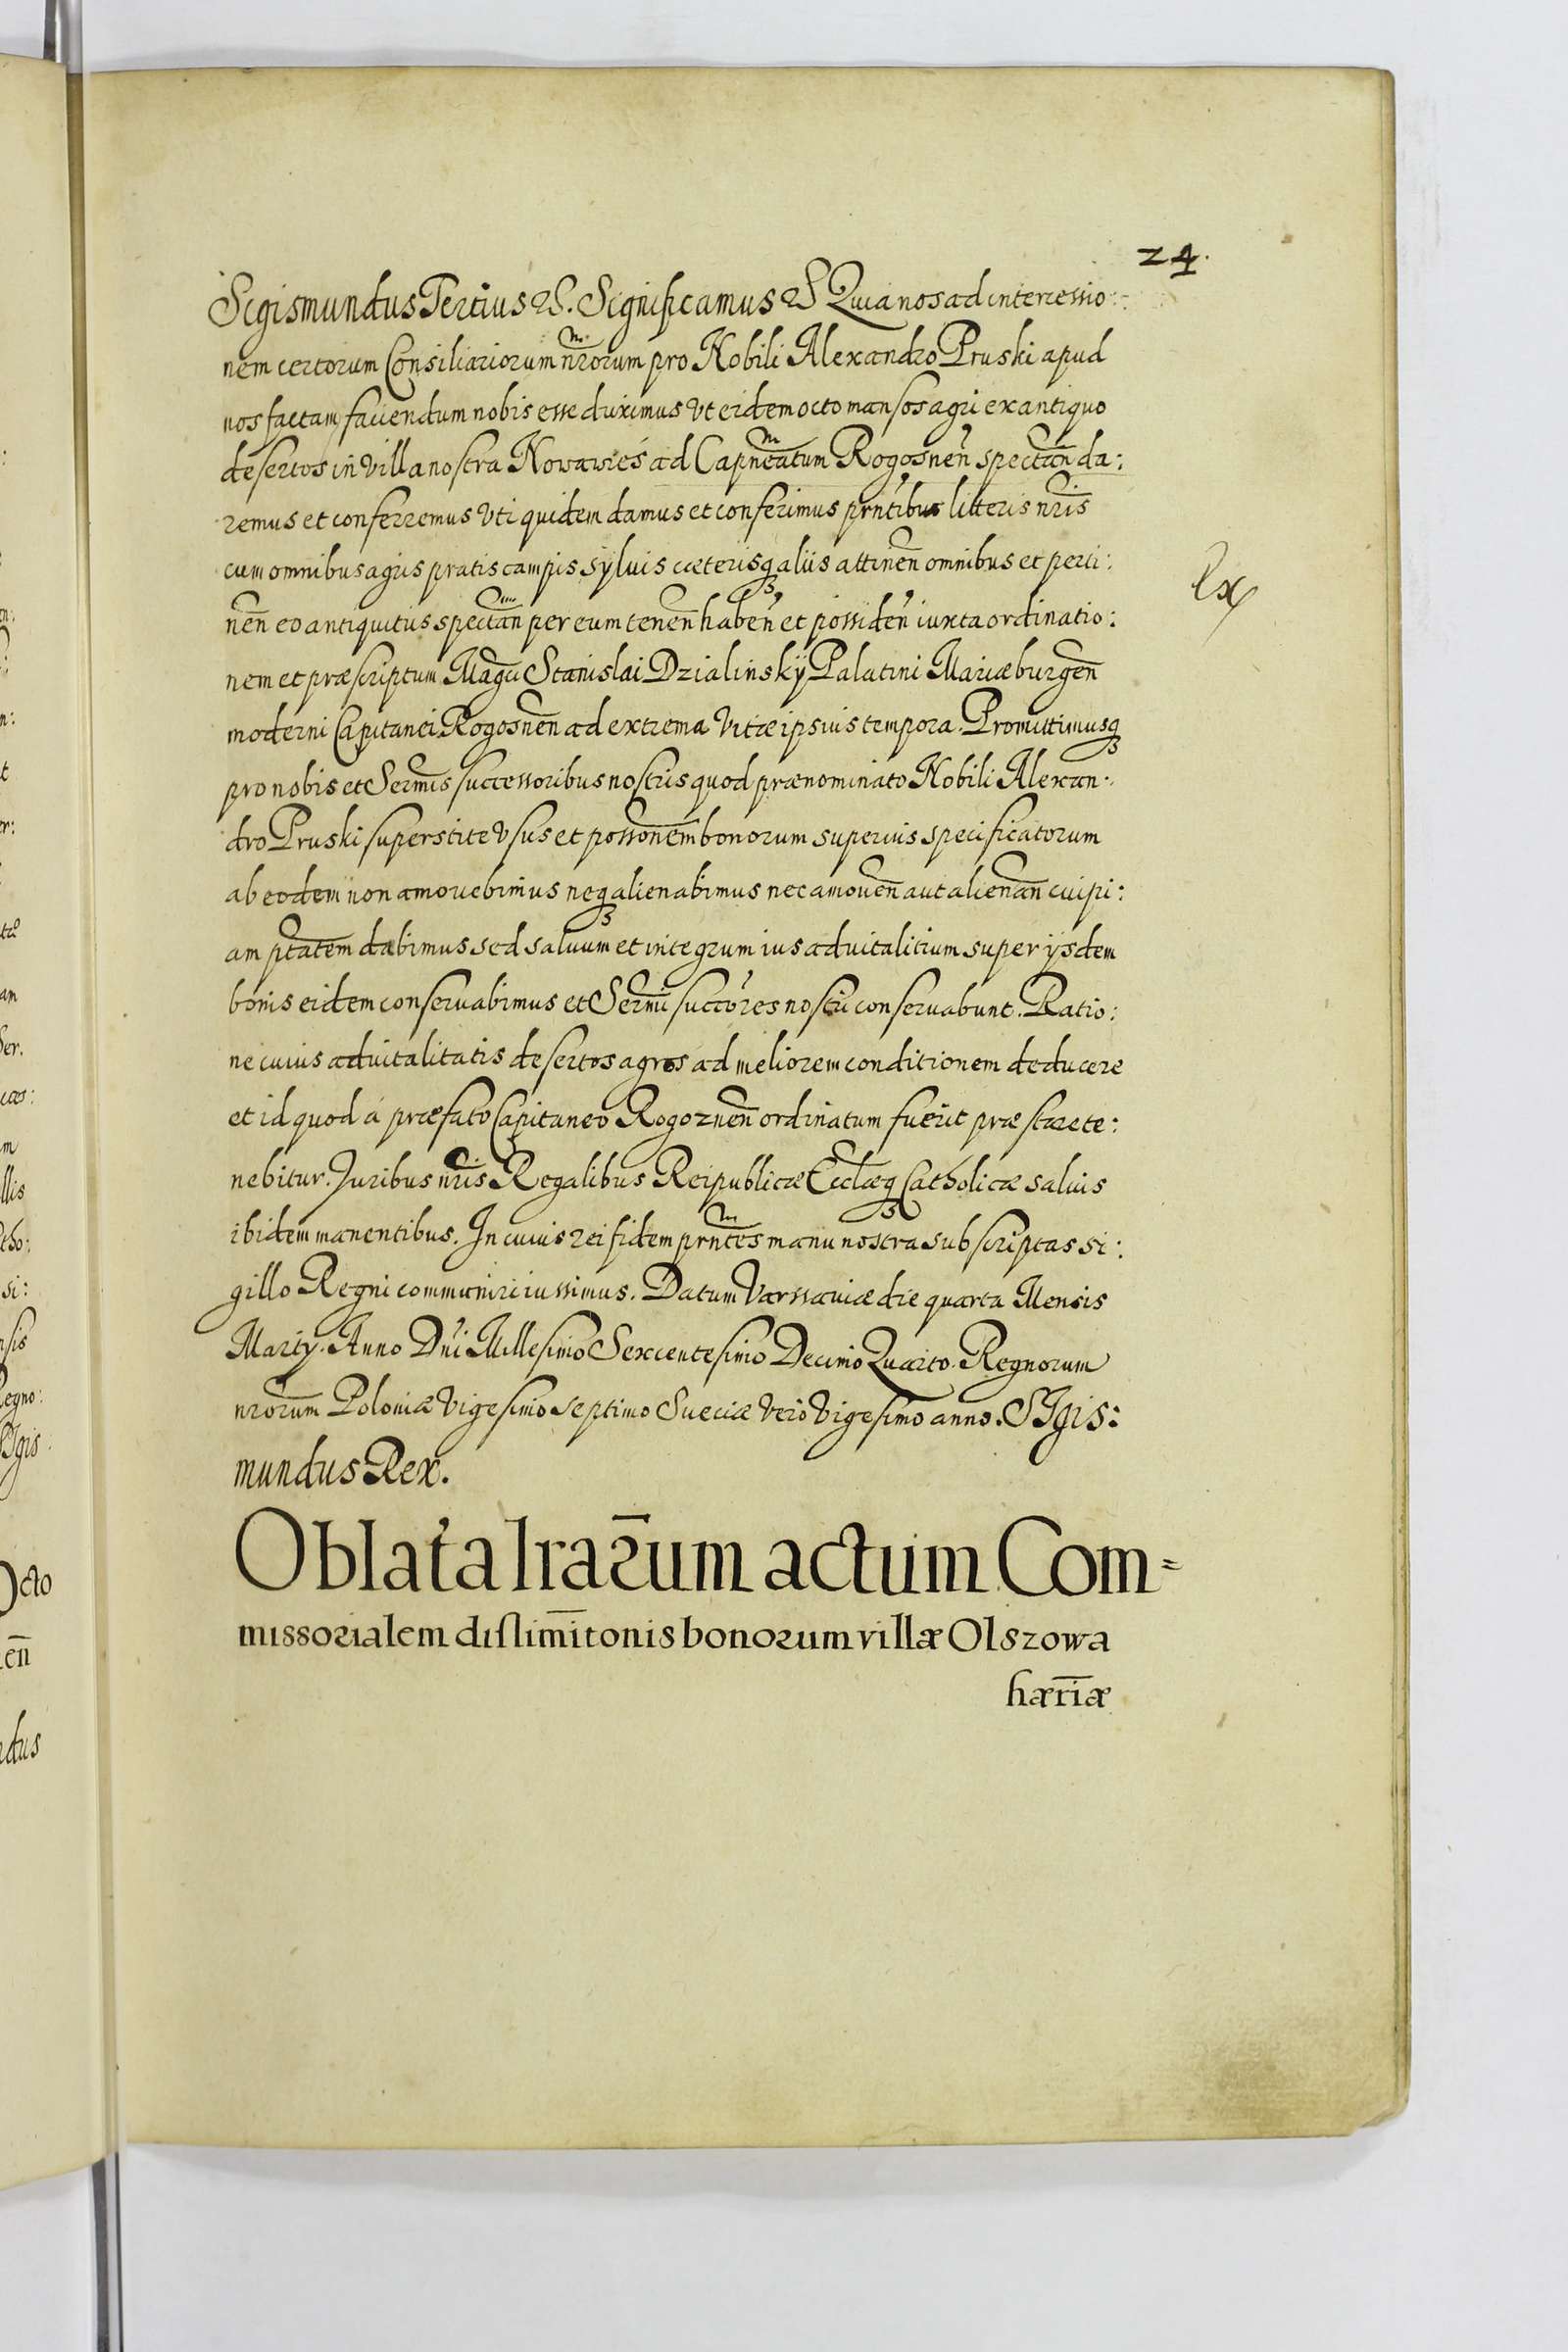 24.
Sigismundus Tertius &. Significamus & Quia nos ad intercessio:
nem certorum Consiliariorum nr̄orum pro Nobili Alexandro Pruski apud
nos factam faciendum nobis esse duximus Vt eidem octo mansos agri ex antiquo
desertos in Villa nostra Nowawieś ad Capn̄eatum Rogosnen̄ spectan̄ da:
remus et conferremus Vti quidem damus et conferimus prn̄tibus litteris nr̄is
cum omnibus agris pratis campis sylvis cæterisq₃ aliis attinen̄ omnibus et perti:
nen̄ eo antiquitus spectan̄ per eum tenen̄ haben̄ et possiden̄ iuxta ordinatio:
nem et præscriptum Magci Stanislai Dzialinskÿ Palatini Mariæburgen̄
moderni Capitanei Rogosnen̄ ad extrema Vitæ ipsius tempora. Promittimusq₃
pro nobis et Serm̄is successoribus nostris quod prænominato Nobili Alexan:
dro Pruski superstite Vsus et posson̄em bonorum superius specificatorum
ab eodem non amovebimus neq₃ alienabimus nec amoven̄ aut alienan̄ cuipi:
am ptātem dabimus sed salvum et integrum ius advitalitium super ijsdem
bonis eidem conservabimus et Serm̄i succōres nostri conservabunt. Ratio:
ne cuius advitalitatis desertos agros ad meliorem conditionem deducere
et id quod á præfato Capitaneo Rogoznen̄ ordinatum fuerit præstare te:
nebitur. Juribus nr̄is Regalibus Reipublicæ Eccl̄æq₃ Catholicæ salvis
ibidem manentibus. In cuius rei fidem prn̄tes manu nostra subscriptas si:
gillo Regni communiri iussimus. Datum Varssaviæ die quarta Mensis
Martÿ. Anno Dn̄i Millesimo Sexcentesimo Decimo Quarto. Regnorum
nr̄orum Poloniæ Vigesimo septimo Sueciæ Vero Vigesimo anno. SIgis:
mundus Rex.
Oblata lrar̄um actum Com=
missorialem dislim̄itonis bonorum villæ Olszowa
hær̄iæ